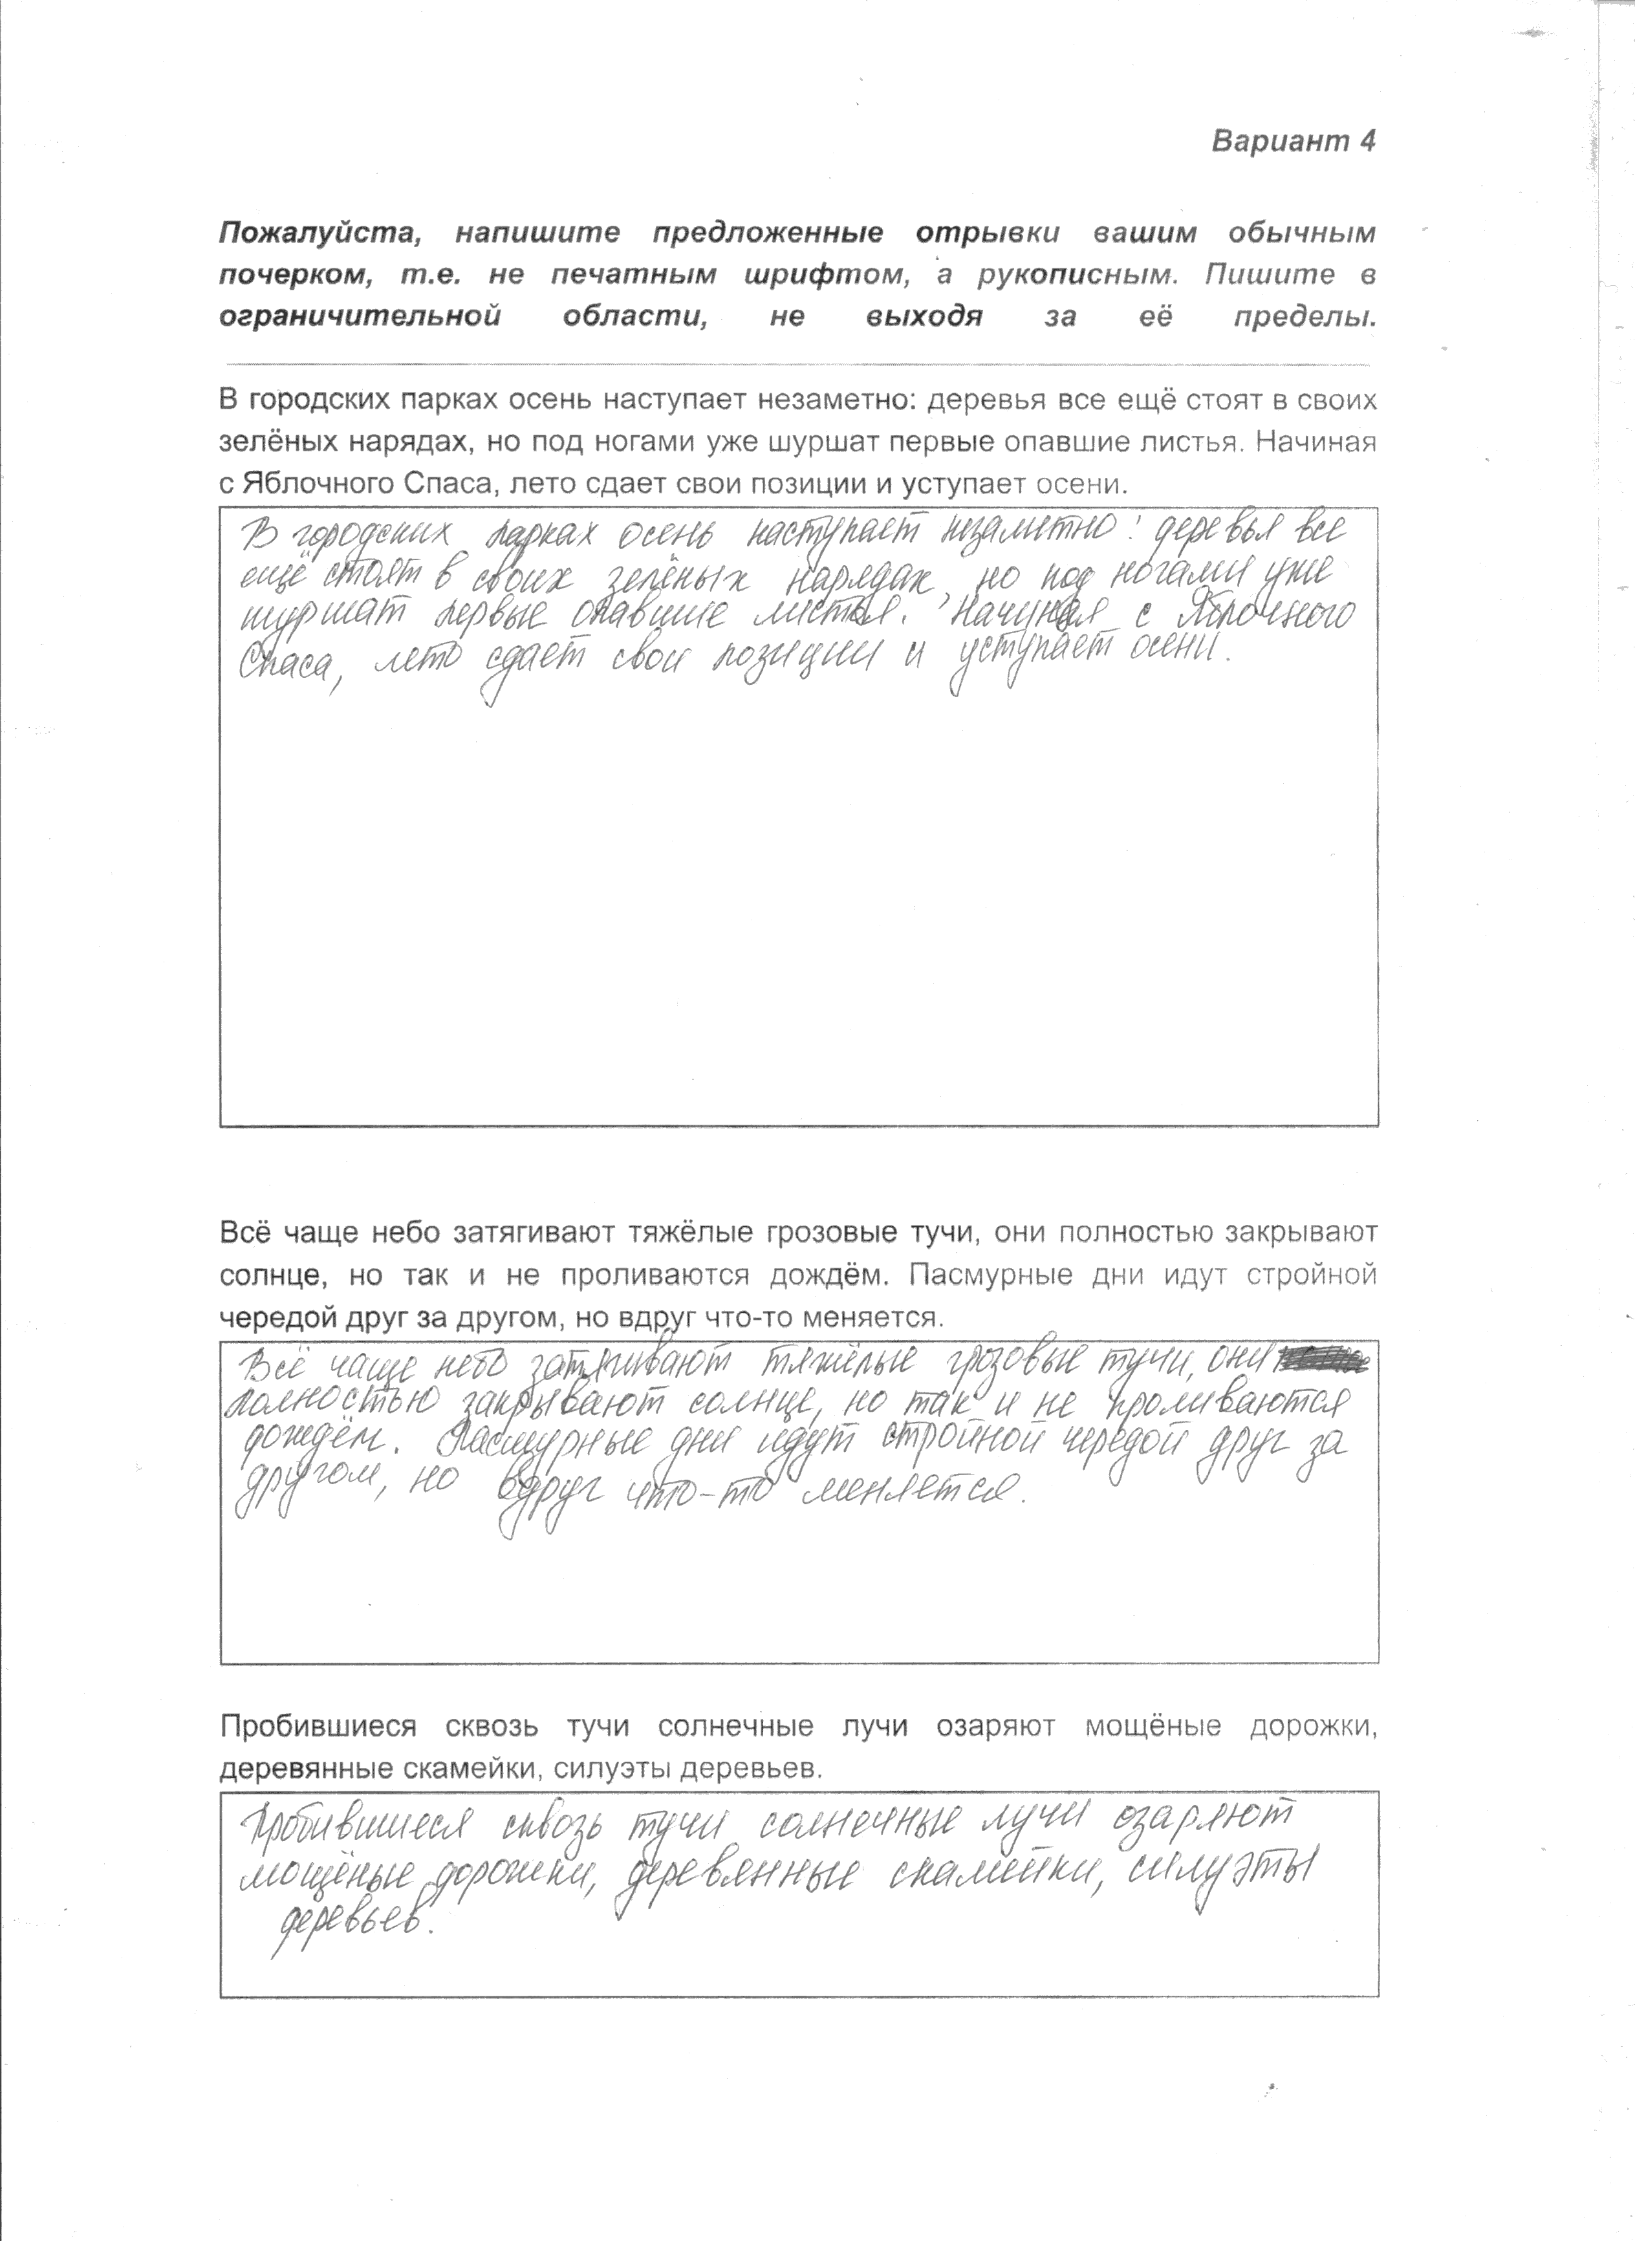 Вариант 4
Пожалуйста, напишите предложенные отрывки вашим обычным
почерком, т.е. не печатным шрифтом, а рукописным. Пишите в
ограничительной области, не выходя за её пределы.
В городских парках осень наступает незаметно: деревья все ещё стоят в своих
зелёных нарядах, но под ногами уже шуршат первые опавшие листья. Начиная
с Яблочного Спаса, лето сдает свои позиции и уступает осени.
В городских парках осень наступает незаметно: деревья все
ещё стоят в своих зелёных нарядах, но под ногами уже
шуршат первые опавшие листья. Начиная с Яблочного
Спаса, лето сдает свои позиции и уступает осени.
Всё чаще небо затягивают тяжёлые грозовые тучи, они полностью закрывают
солнце, но так и не проливаются дождём. Пасмурные дни идут стройной
чередой друг за другом, но вдруг что-то меняется.
Всё чаще небо затягивают тяжёлые грозовые тучи, они
полностью закрывают солнце, но так и не проливаются
дождём. Пасмурные дни идут стройной чередой друг за
другом, но вдруг что-то меняется.
Пробившиеся сквозь тучи солнечные лучи озаряют мощёные дорожки,
деревянные скамейки, силуэты деревьев.
Пробившиеся сквозь тучи солнечные лучи озаряют
мощёные дорожки, деревянные скамейки, силуэты
деревьев.